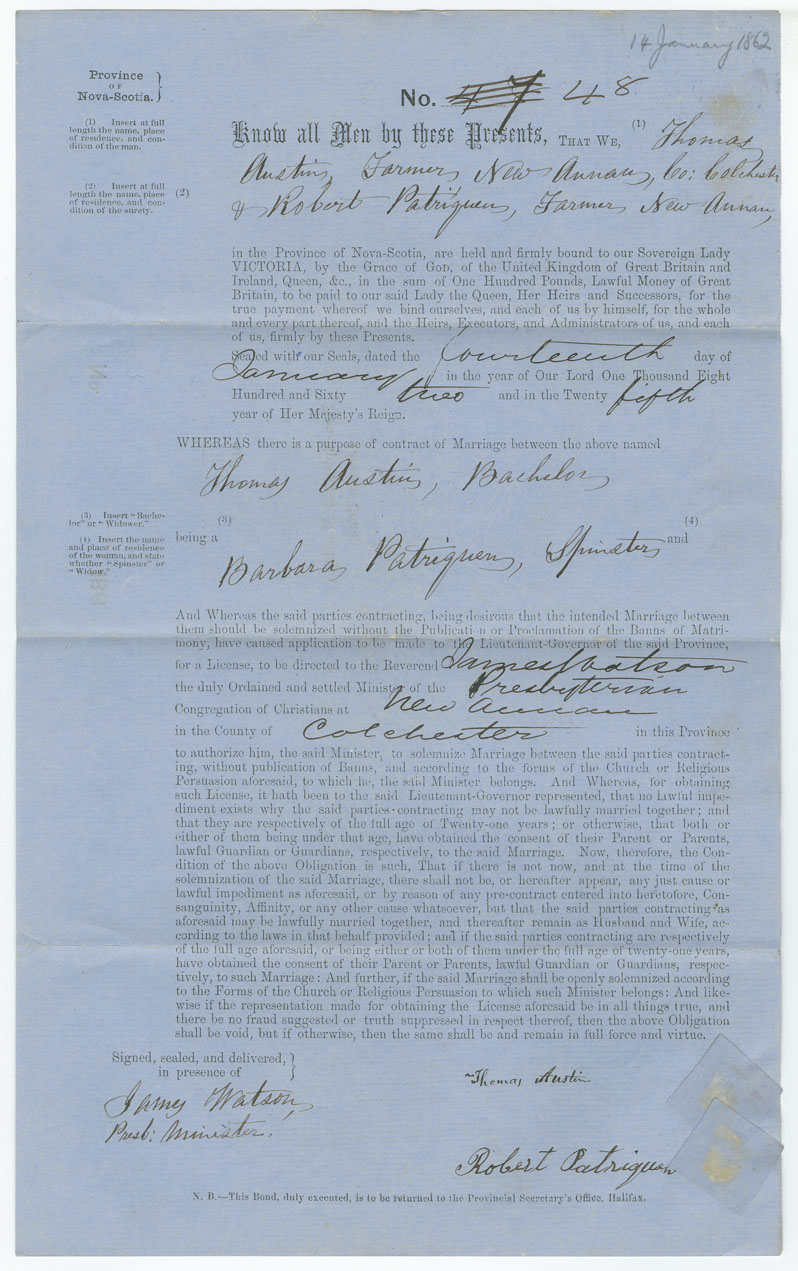 14 January 1862
Province
OF
Nova-Scotia.
No. 47 48
(1) Insert at full
length the name, place
of residence, and con-
dition of the man.
Know all Men by these Presents, THAT WE, (1) Thomas
Austin, Farmer, New Annan, Co: Colchester
(2) Insert at full
length the name, place
of residence, and con-
dition of the surety.
(2)
& Robert Patriquen, Farmer New Annan,
in the Province of Nova-Scotia, are held and firmly bound to our Sovereign Lady
VICTORIA, by the Grace of GOD, of the United Kingdom of Great Britain and
Ireland, Queen, &c., in the sum of One Hundred Pounds, Lawful Money of Great
Britain, to be paid to our said Lady the Queen, Her Heirs and Successors, for the
true payment whereof we bind ourselves, and each of us by himself, for the whole
and every part thereof, and the Heirs, Executors, and Administrators of us, and each
of us, firmly by these Presents.
Sealed with our Seals, dated the fourteenth day of
January in the year of Our Lord One Thousand Eight
Hundred and Sixty two and in the Twenty fifth
year of Her Majesty's Reign.
WHEREAS there is a purpose of contract of Marriage between the above named
Thomas Austin, Bachelor
(3) Insert "Bache-
lor" or "Widower."
(4) Insert the name
and place of residence
of the woman, and state
whether "Spinster" or
"Widow."
(3) (4)
being a and
Barbara Patriquen, Spinster
And Whereas the said parties contracting, being desirous that the intended Marriage between
them should be solemnized without the Publication or Proclamation of the Banns of Matri-
mony, have caused application to be made to the Lieutenant-Governor of the said Province,
for a License, to be directed to the Reverend James Watson
the duly Ordained and settled Minister of the Presbyterian
Congregation of Christians at New Annan
in the County of Colchester in this Province
to authorize him, the said Minister, to solemnize Marriage between the said parties contract-
ing, without publication of Banns, and according to the forms of the Church or Religious
Persuasion aforesaid, to which he, the said Minister belongs. And Whereas, for obtaining
such License, it hath been to the said Lieutenant-Governor represented, that no lawful impe-
diment exists why the said parties contracting may not be lawfully married together; and
that they are respectively of the full age of Twenty-one years; or otherwise, that both or
either of them being under that age, have obtained the consent of their Parent or Parents,
lawful Guardian or Guardians, respectively, to the said Marriage. Now, therefore, the Con-
dition of the above Obligation is such, That if there is not now, and at the time of the
solemnization of the said Marriage, there shall not be, or hereafter appear, any just cause or
lawful impediment as aforesaid, or by reason of any pre-contract entered into heretofore, Con-
sanguinity, Affinity, or any other cause whatsoever, but that the said parties contracting as
aforesaid may be lawfully married together, and thereafter remain as Husband and Wife, ac-
cording to the laws in that behalf provided; and if the said parties contracting are respectively
of the full age aforesaid, or being either or both of them under the full age of twenty-one years,
have obtained the consent of their Parent or Parents, lawful Guardian or Guardians, respec-
tively, to such Marriage: And further, if the said Marriage shall be openly solemnized according
to the Forms of the Church or Religious Persuasion to which such Minister belongs: And like-
wise if the representation made for obtaining the License aforesaid be in all things true, and
there be no fraud suggested or truth suppressed in respect thereof, then the above Obligation
shall be void, but if otherwise, then the same shall be and remain in full force and virtue.
Signed, sealed, and delivered,
in presence of
James Watson,
Presb: Minister.
Thomas Austin
Robert Patriquen
N. B.—This Bond, duly executed, is to be returned to the Provincial Secretary's Office, Halifax.